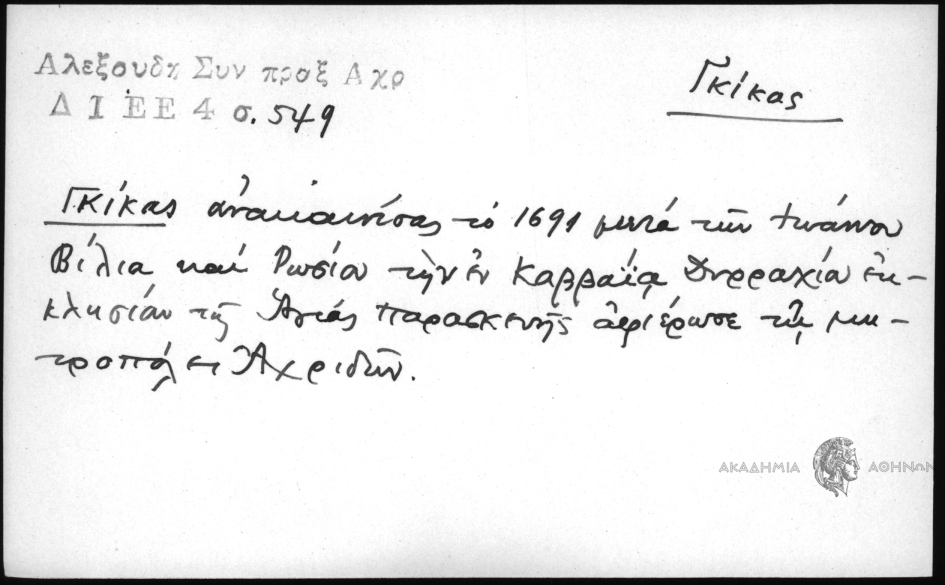 Αλεξουδη Συν πραξ Αχρ
Δ Ι Ε Ε 4 σ. 549
Γκίκας
Γκίκας ἀνακαινίσας τό 1691 μετά τῶν Ἰωάννου
Βίλια καί Ρωσίου τήν ἐν Καββαΐᾳ Δυρραχία ἐκ-
κλησίαν τῆς Ἁγίας Παρασκευῆς ἀφιέρωσε τῇ μη-
τροπόλει Ἀχριδῶν.
ΑΚΑΔΗΜΙΑ ΑΘΗΝΩΝ